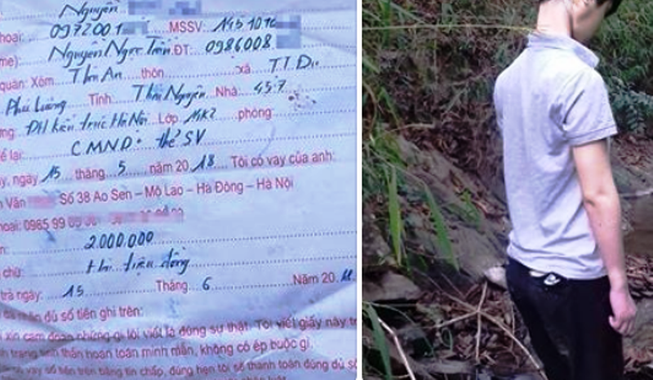 Nguyên
hoại: 097200 MSSV: 1451010
me) Nguyễn Ngọc Trân ĐT: 0986008
quán: Xóm Thọ An thôn xã TT. Đu
Phú Lương Tỉnh: Thái Nguyên Nhà: 457
ng: ĐH kiến trúc Hà Nội Lớp phòng:
lại: CMND + thẻ SV
y, ngày 15 tháng 5 năm 2018. Tôi có vay của anh:
Văn Số 38 Ao Sen – Mộ Lao – Hà Đông – Hà Nội
hoại: 0965 99
n: 2.000.000
chữ: Hai triệu đồng
trả ngày: 15 Tháng 6 Năm 20
đã nhận đủ số tiền ghi trên:
i xin cam đoan những gì tôi viết là đúng sự thật. Tôi viết giấy này tr
h trạng tinh thần hoàn toàn minh mẫn, không có ép buộc gì.
vay số tiền trên bằng tín chấp, đúng hẹn tôi sẽ thanh toán đúng đủ số